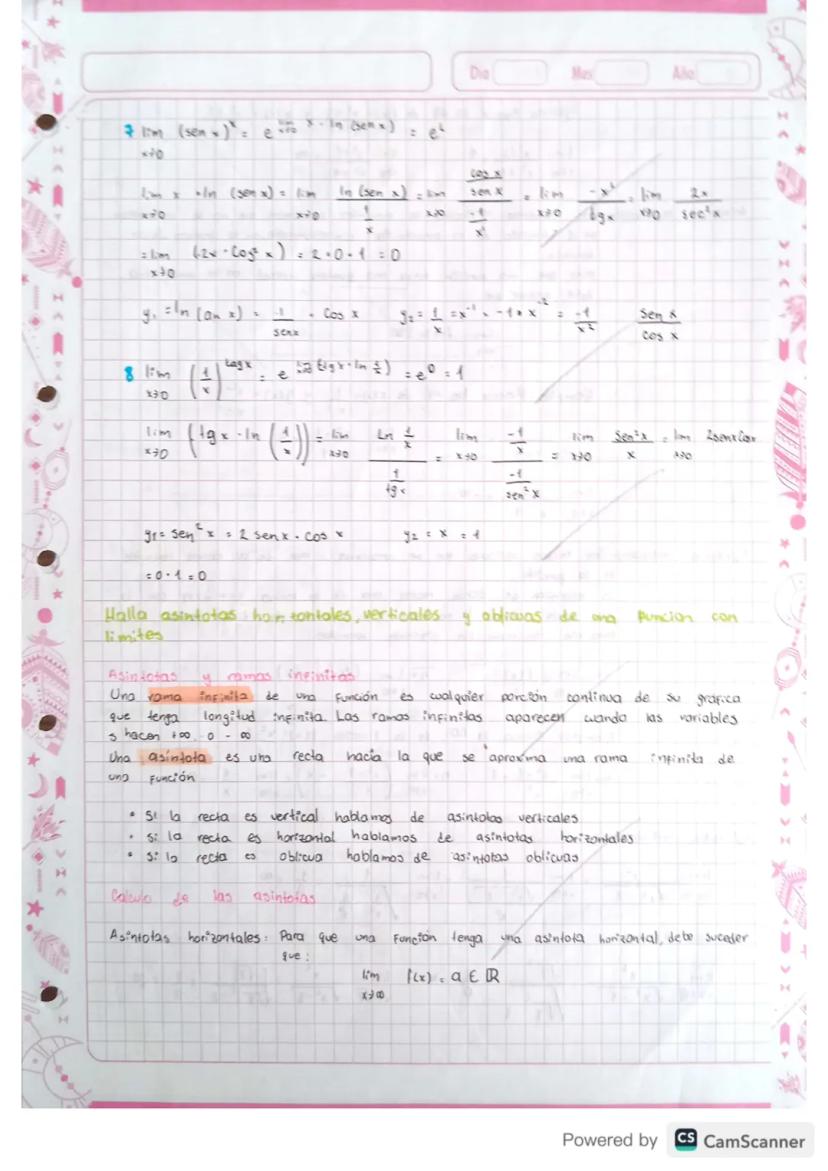 Día Mes Año
7 lim (sen x)^x = e^{lim x→0 x · ln (sen x)} = e^L
x→0
lim x · ln (sen x) = lim ln (sen x) / (1/x) = lim (cos x / sen x) / (-1/x²) = lim -x² / tg x = lim 2x / sec² x
x→0 x→0 x→0 x→0 x→0
= lim (2x · Cos² x) = 2 · 0 · 1 = 0
x→0
y₁ = ln (an x) = 1/sen x · Cos x y₂ = 1/x = x⁻¹ = -1 · x⁻² = -1/x² sen x / cos x
8 lim (1/x)^{tag x} = e^{lim x→0 (tg x · ln 1/x)} = e⁰ = 1
x→0
lim (tg x · ln (1/x)) = lim Ln 1/x / (1/tg x) = lim (-1/x) / (-1/sen² x) = lim Sen² x / x = lim 2senx Cosx
x→0 x→0 x→0 x→0 x→0
y₁ = sen² x = 2 senx · cos x y₂ = x = 1
= 0 · 1 = 0
Halla asintotas horizontales, verticales y oblicuas de una Funcion con
limites
Asintotas y ramas infinitas
Una rama infinita de una Función es cualquier porción continua de su gráfica
que tenga longitud infinita. Las ramas infinitas aparecen cuando las variables
s hacen +∞ o -∞
Una asíntota es una recta hacia la que se aproxima una rama infinita de
una Función
• Si la recta es vertical hablamos de asintotas verticales
• si la recta es horizontal hablamos de asintotas horizontales
• si la recta es oblicua hablamos de asintotas oblicuas
Calculo de las asintotas
Asintotas horizontales: Para que una Función tenga una asintota horizontal, debe suceder
que:
lim f(x) = a ∈ ℝ
x→∞
Powered by CS CamScanner